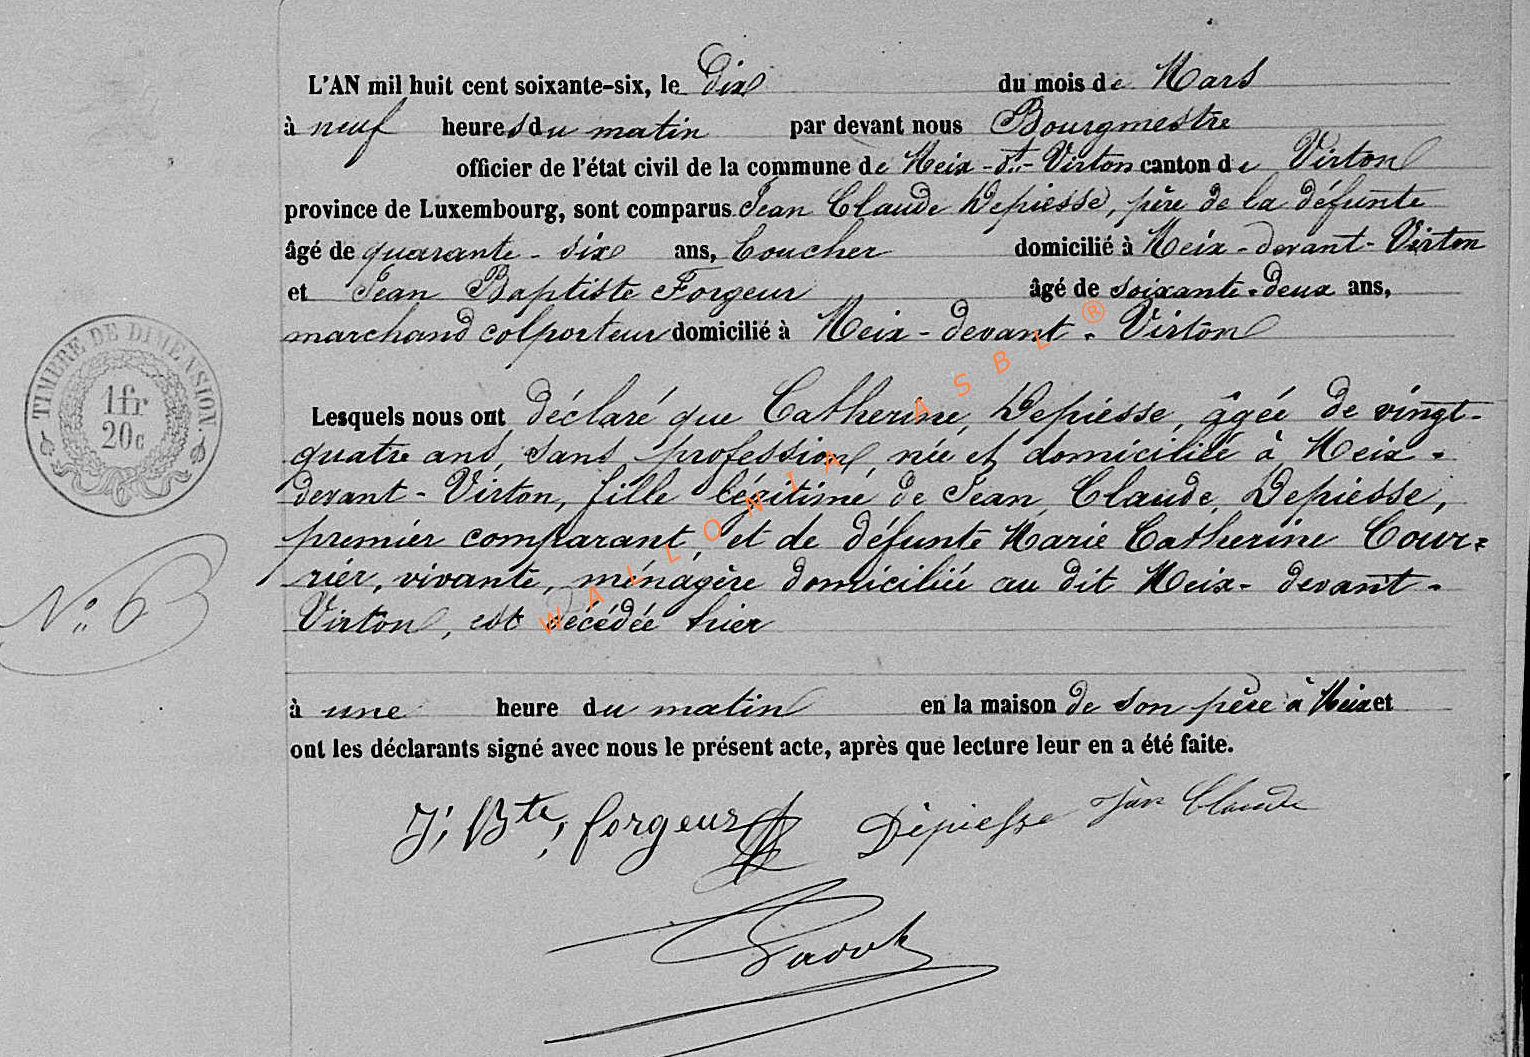 L'AN mil huit cent soixante-six, le Dix du mois de Mars
à neuf heures du matin par devant nous Bourgmestre
officier de l'état civil de la commune de Meix-dt-Virton canton de Virton
province de Luxembourg, sont comparus Jean Claude Depiesse, père de la défunte
âgé de quarante-six ans, Coucher domicilié à Meix-devant-Virton
et Jean Baptiste Forgeur âgé de soixante-deux ans,
marchand colporteur domicilié à Meix-devant-Virton
Lesquels nous ont déclaré que Catherine, Depiesse, âgée de vingt-
quatre ans, sans profession, née et domiciliée à Meix-
devant-Virton, fille légitime de Jean, Claude, Depiesse,
premier comparant, et de défunte Marie Catherine Cour=
rier, vivante, ménagère domiciliée au dit Meix-devant-
Virton, est décédée hier
à une heure du matin en la maison de son père à Meix et
ont les déclarants signé avec nous le présent acte, après que lecture leur en a été faite.
J, Bte, forgeur Dèpiesse Jean Claude
TIMBRE DE DIMENSION
1fr
20c
N° 6
WALLONIA ASBL ®